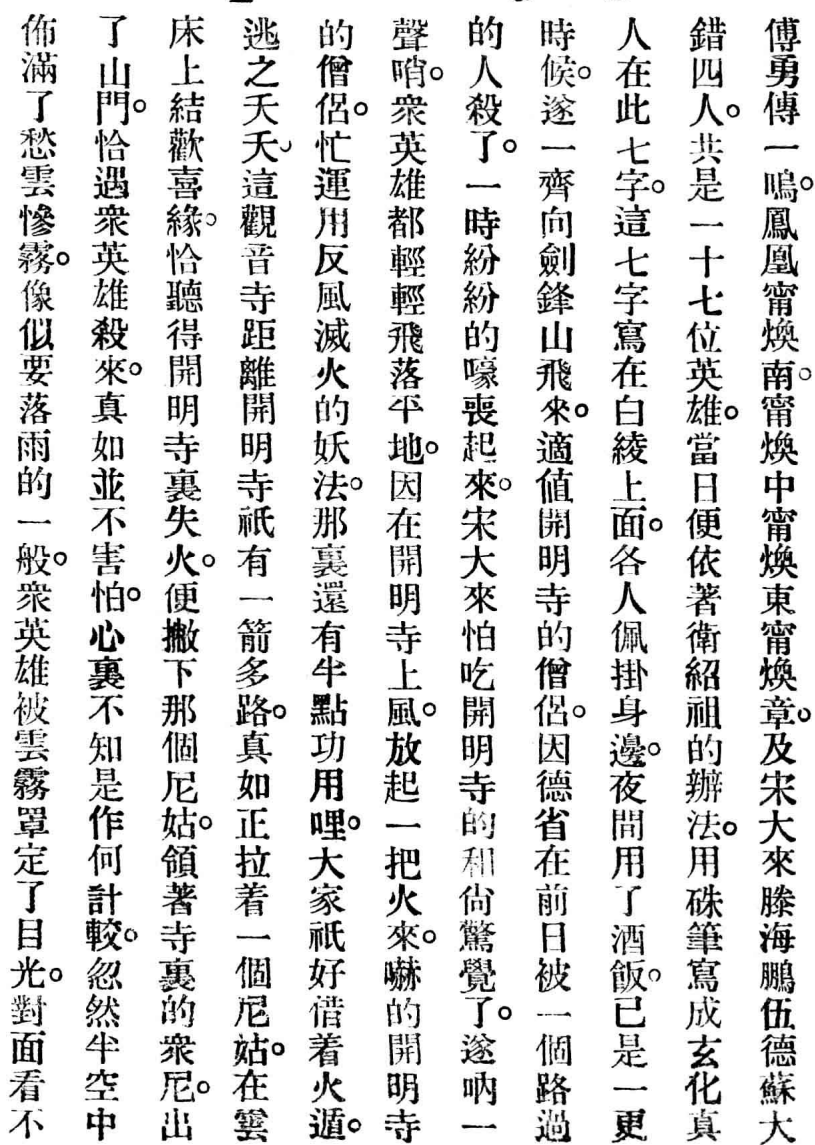 傅勇傅一鳴。鳳凰甯煥南。甯煥中甯煥東甯煥章。及宋大來滕海鵬伍德蘇大
錯四人。共是一十七位英雄。當日便依著衛紹祖的辦法。用硃筆寫成玄化眞
人在此七字。這七字寫在白綾上面。各人佩掛身邊。夜間用了酒飯。已是一更
時候。遂一齊向劍鋒山飛來。適值開明寺的僧侶。因德省在前日被一個路過
的人殺了。一時紛紛的嚎喪起來。宋大來怕吃開明寺的和尙驚覺了。遂吶一
聲哨。衆英雄都輕輕飛落平地。因在開明寺上風。放起一把火來。嚇的開明寺
的僧侶。忙運用反風滅火的妖法。那裏還有半點功用哩。大家祇好借着火遁。
逃之夭夭。這觀音寺距離開明寺祇有一箭多路。眞如正拉着一個尼姑。在雲
床上結歡喜緣。恰聽得開明寺裏失火。便撇下那個尼姑。領著寺裏的衆尼。出
了山門。恰遇衆英雄殺來。眞如並不害怕。心裏不知是作何計較。忽然半空中
佈滿了愁雲慘霧。像似要落雨的一般。衆英雄被雲霧罩定了目光。對面看不